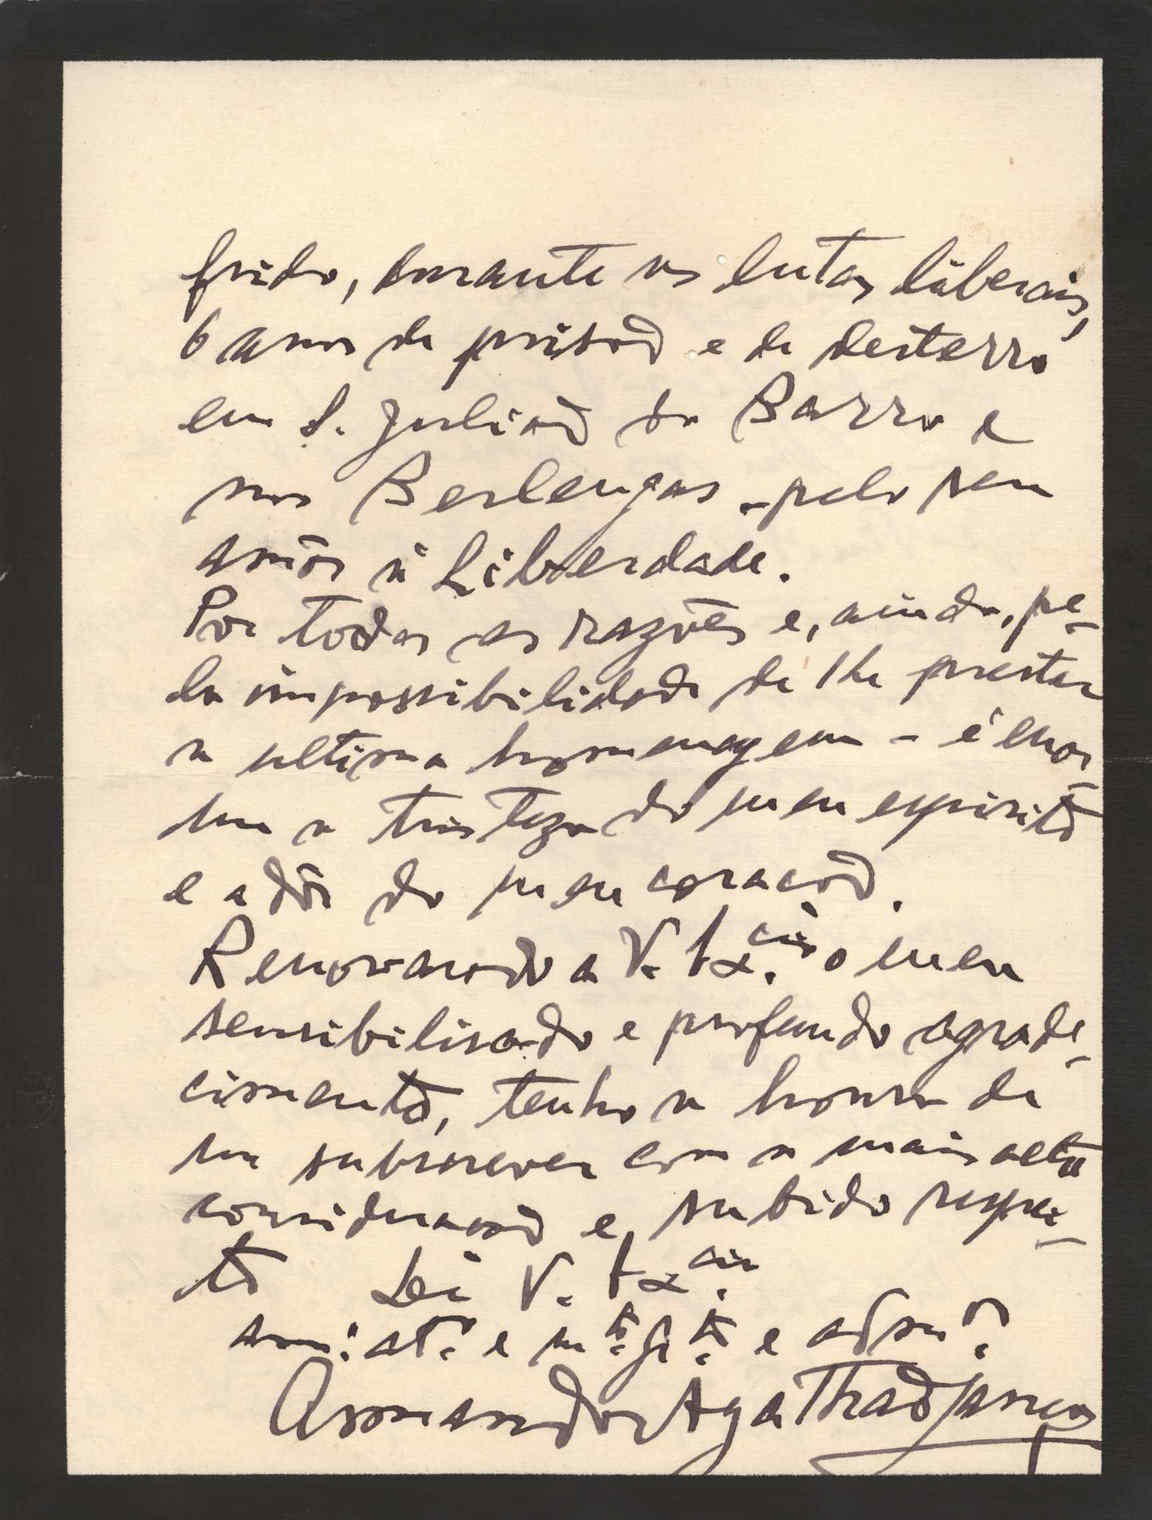 frido, durante as lutas liberais,
6 anos de prisão e de desterro
em S. Julião da Barra e
nas Berlengas - pelo seu
amôr á Liberdade.
Por todas as razões e, ainda, pe-
la impossibilidade de lhe prestar
a ultima homenagem - é enor-
me a tristeza do meu espirito
e a dôr do meu coração.
Renovando a V. Ex.cia o meu
sensibilisado e profundo agrade-
cimento, tenho a honra de
me subscrever com a mais alta
consideração e subido respei-
to De V. Ex.cia
am.o at.o e m.to g.to e adm.or
Armando Agathão